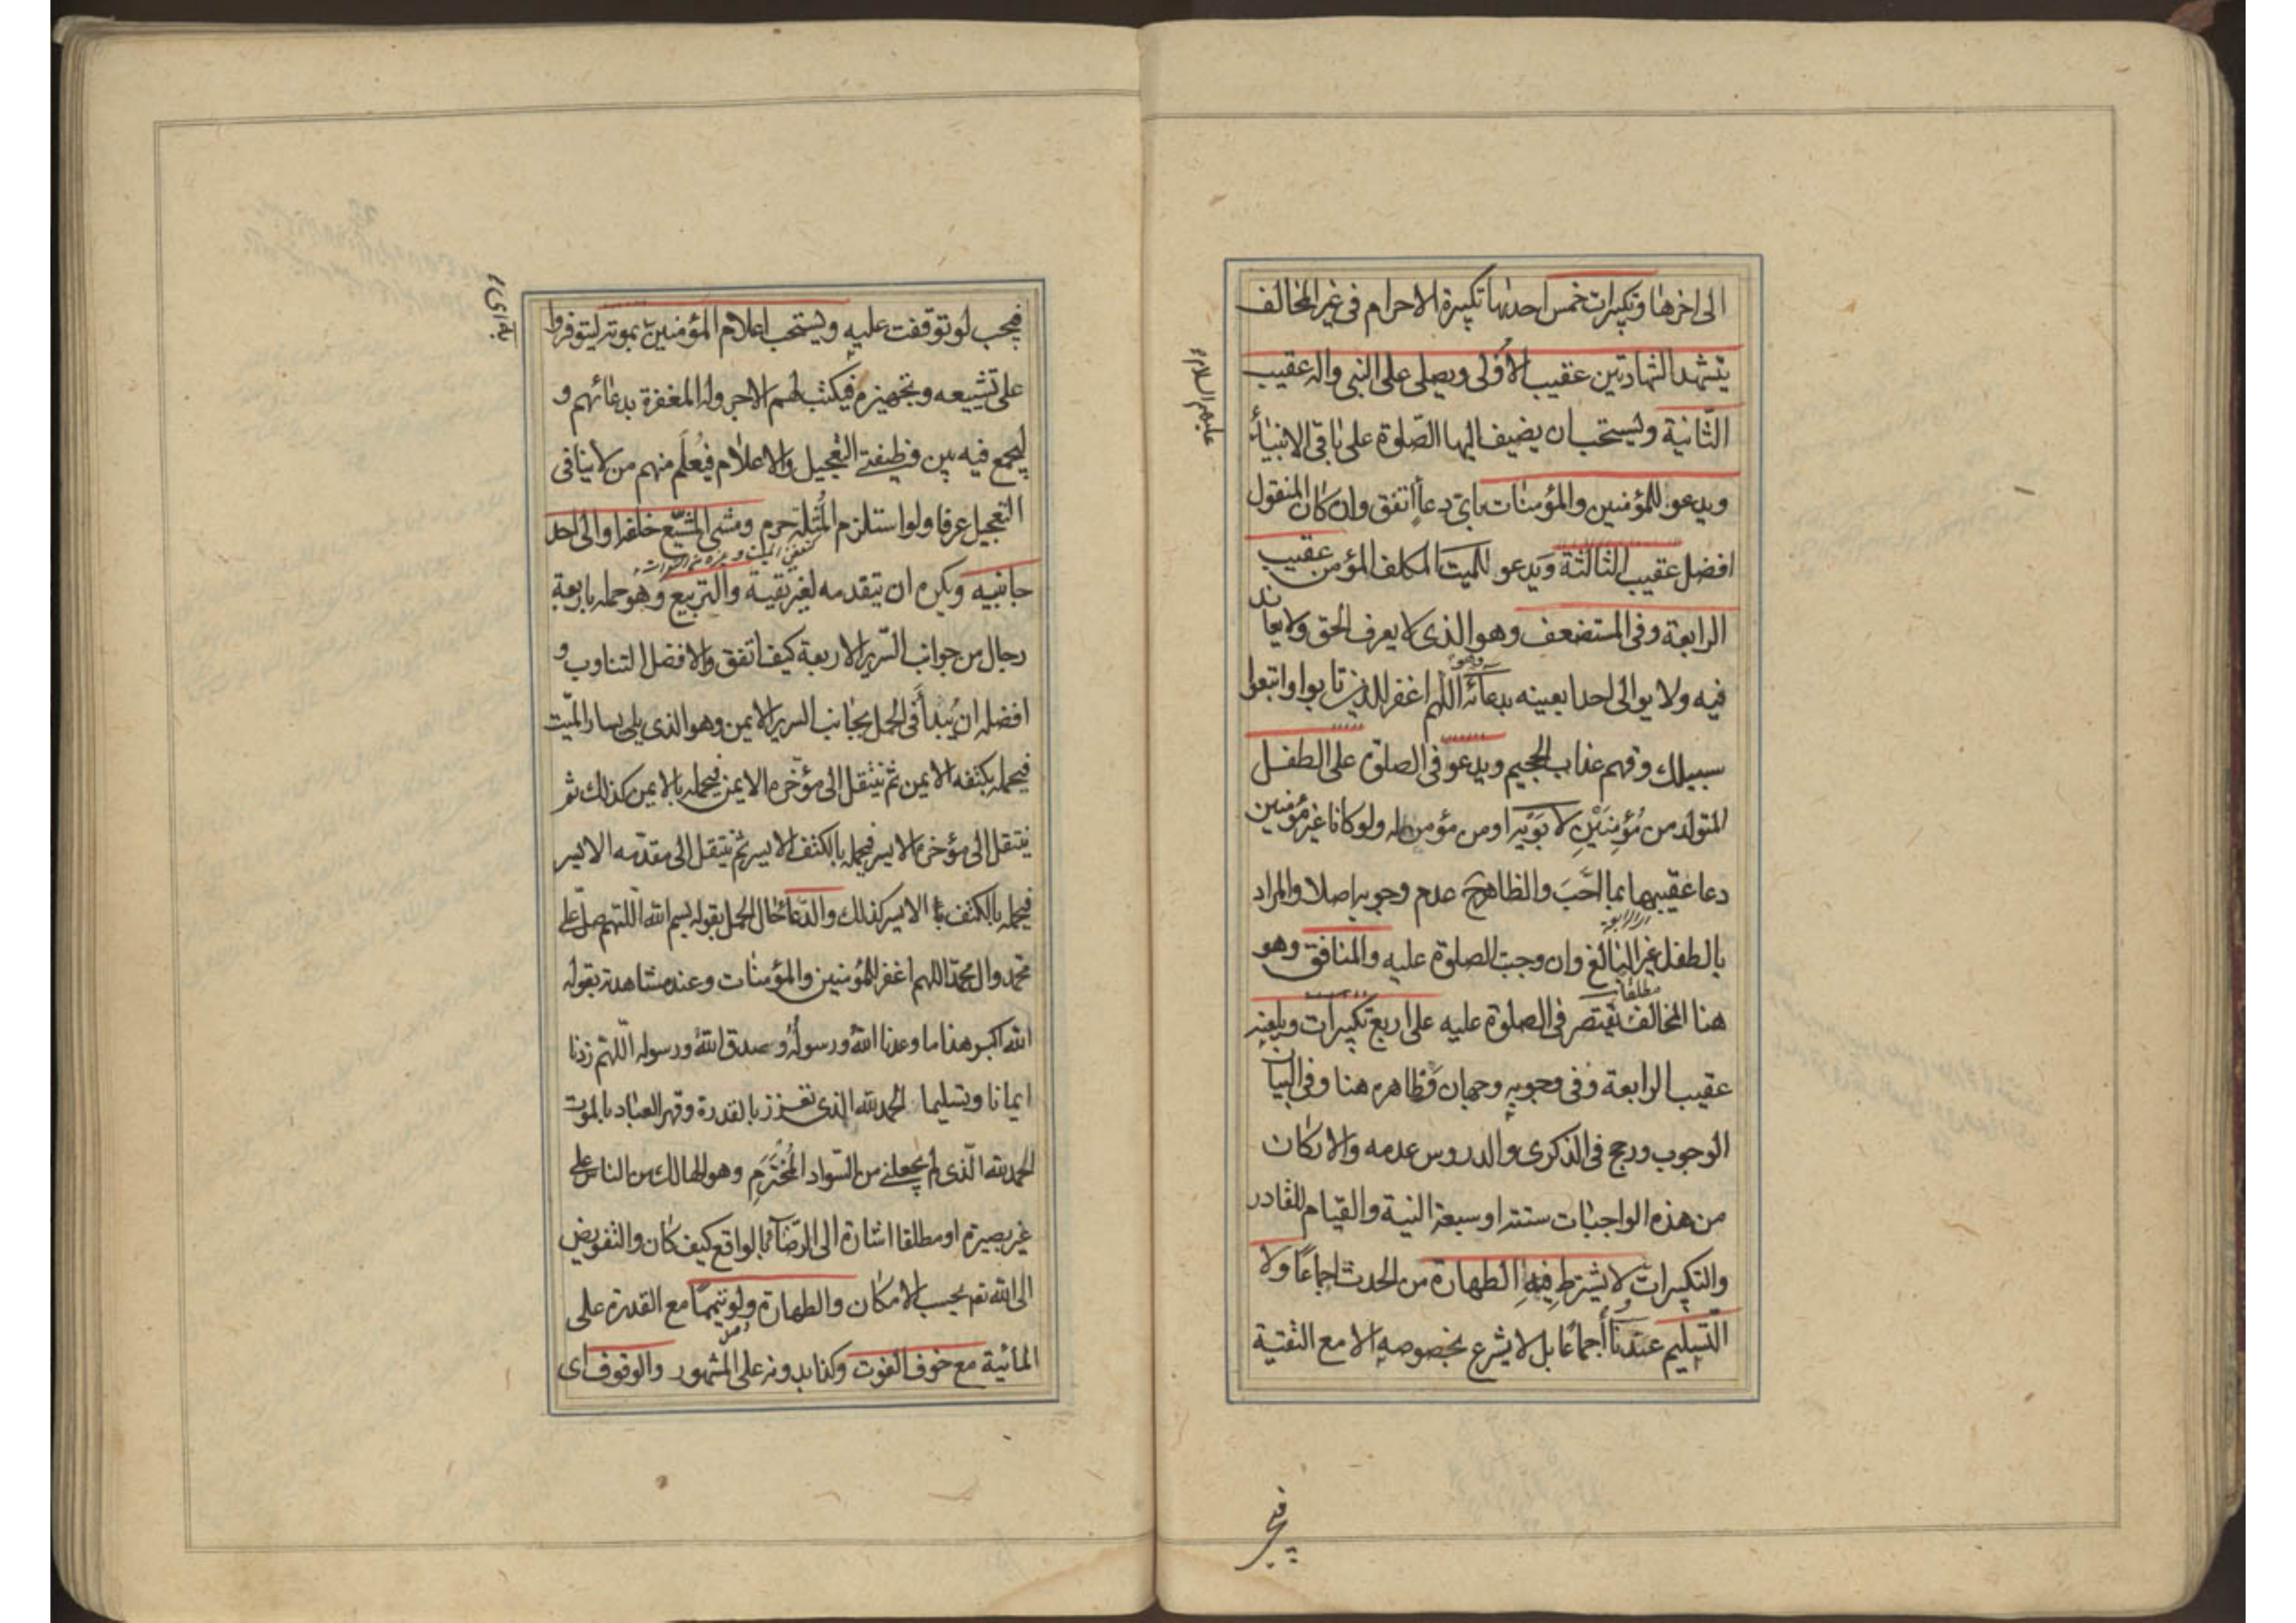 الى اخرها وتكبيرات خمس احدىها تكبيرة الاحرام فى غير المخالف
يتشهد الشهادتين عقيب الاولى ويصلى على النبى واله عقيب
الثانية ويستحب ان يضيف اليها الصلوة على باقى الانبياء
عليهم السلام
ويدعو للمؤمنين والمؤمنات باى دعاء اتفق وان كان المنقول
افضل عقيب الثالثة ويدعو للميت المكلف المؤمن عقيب
الرابعة وفى المستضعف وهو الذى لا يعرف الحق ولا يعاند
فيه ولا يوالى احدا بعينه بدعائه وهو اللهم اغفر للذين تابوا واتبعوا
سبيلك وقهم عذاب الجحيم ويدعو فى الصلوة على الطفل
المتولد من مؤمنين لابويه او من مؤمن له ولو كانا غير مؤمنين
دعا عقيبهما بما احب والظاهر ح عدم وجوبه اصلا والمراد
بالطفل غير البالغ وان وجبت الصلوة عليه والمنافق وهو
هنا المخالف مطلقا يقتصر فى الصلوة عليه على اربع تكبيرات ويلعنه
عقيب الرابعة وفى وجوبه وجهان فظاهره هنا وفى البيان
الوجوب ورجح فى الذكرى والدروس عدمه والاركان
من هذه الواجبات ستة او سبعة النية والقيام للقادر
والتكبيرات لا يشترط فيه الطهارة من الحدث اجماعا ولا
التسليم عندنا اجماعا بل لا يشرع بخصوصه الا مع التقية
فيجب
فيجب لو توقفت عليه ويستحب اعلام المؤمنين بموته ليتوفروا
على تشييعه وتجهيزه فيكتب لهم الاجر وله المغفرة بدعائهم و
ليجمع فيه بين وظيفتى التعجيل والاعلام فيعلم منهم من لا ينافى
التعجيل عرفا ولو استلزم المثلة حرم ومشى المشيع خلفه او الى احد
جانبيه ويكره ان يتقدمه لغير تقية والتربيع وهو حمله باربعة
رجال من جوانب السرير الاربعة كيف اتفق والافضل التناوب و
افضله ان يبدأ فى الحمل بجانب السرير الايمن وهو الذى يلى يسار الميت
فيحمله بكتفه الايمن ثم ينتقل الى مؤخره الايمن فيحمله بالايمن كذلك ثم
ينتقل الى مؤخره الايسر فيحمله بالكتف الايسر ثم ينتقل الى مقدمه الايسر
فيحمله بالكتف الايسر كذلك والدعاء حال الحمل بقوله بسم الله اللهم صل على
محمد وال محمد اللهم اغفر للمؤمنين والمؤمنات وعند مشاهدته بقوله
الله اكبر هذا ما وعدنا الله ورسوله وصدق الله ورسوله اللهم زدنا
ايمانا وتسليما الحمد لله الذى تعزز بالقدرة وقهر العباد بالموت
الحمد لله الذى لم يجعلنى من السواد المخترم وهو الهالك من الناس على
غير بصيرة او مطلقا اشارة الى الرضا بالواقع كيف كان والتفويض
الى الله تع بحسب الامكان والطهارة ولو تيمما مع القدرة على
المائية مع خوف الفوت وكذا بدونه على المشهور والوقوف اى